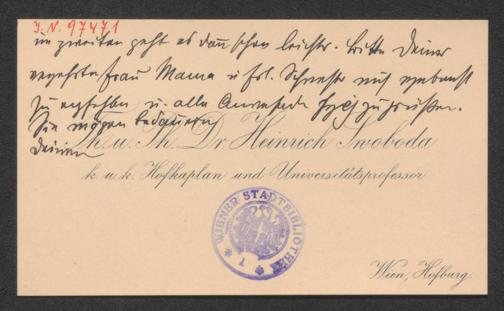 I. N. 97471
im zweiten geht es dann schon leichter. Bitte Deiner
verehrten Frau Mama u. Frl. Schwester mich ergebenst
zu empfehlen u. alle Anwesende zu grüßen.
Sie mögen bedauern
Th. u. Ph. Dr. Heinrich Swoboda
Deinen
k. u. k. Hofkaplan und Universitätsprofessor
WIENER STADTBIBLIOTHEK
Wien, Hofburg.